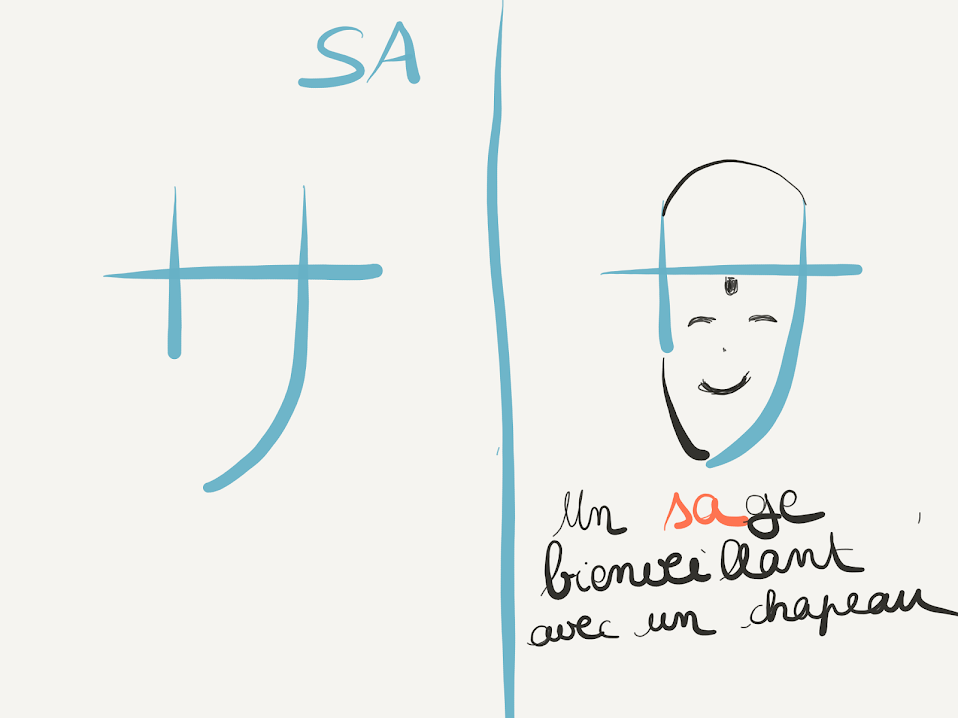 SA
サ
Un sage
bienveillant
avec un chapeau